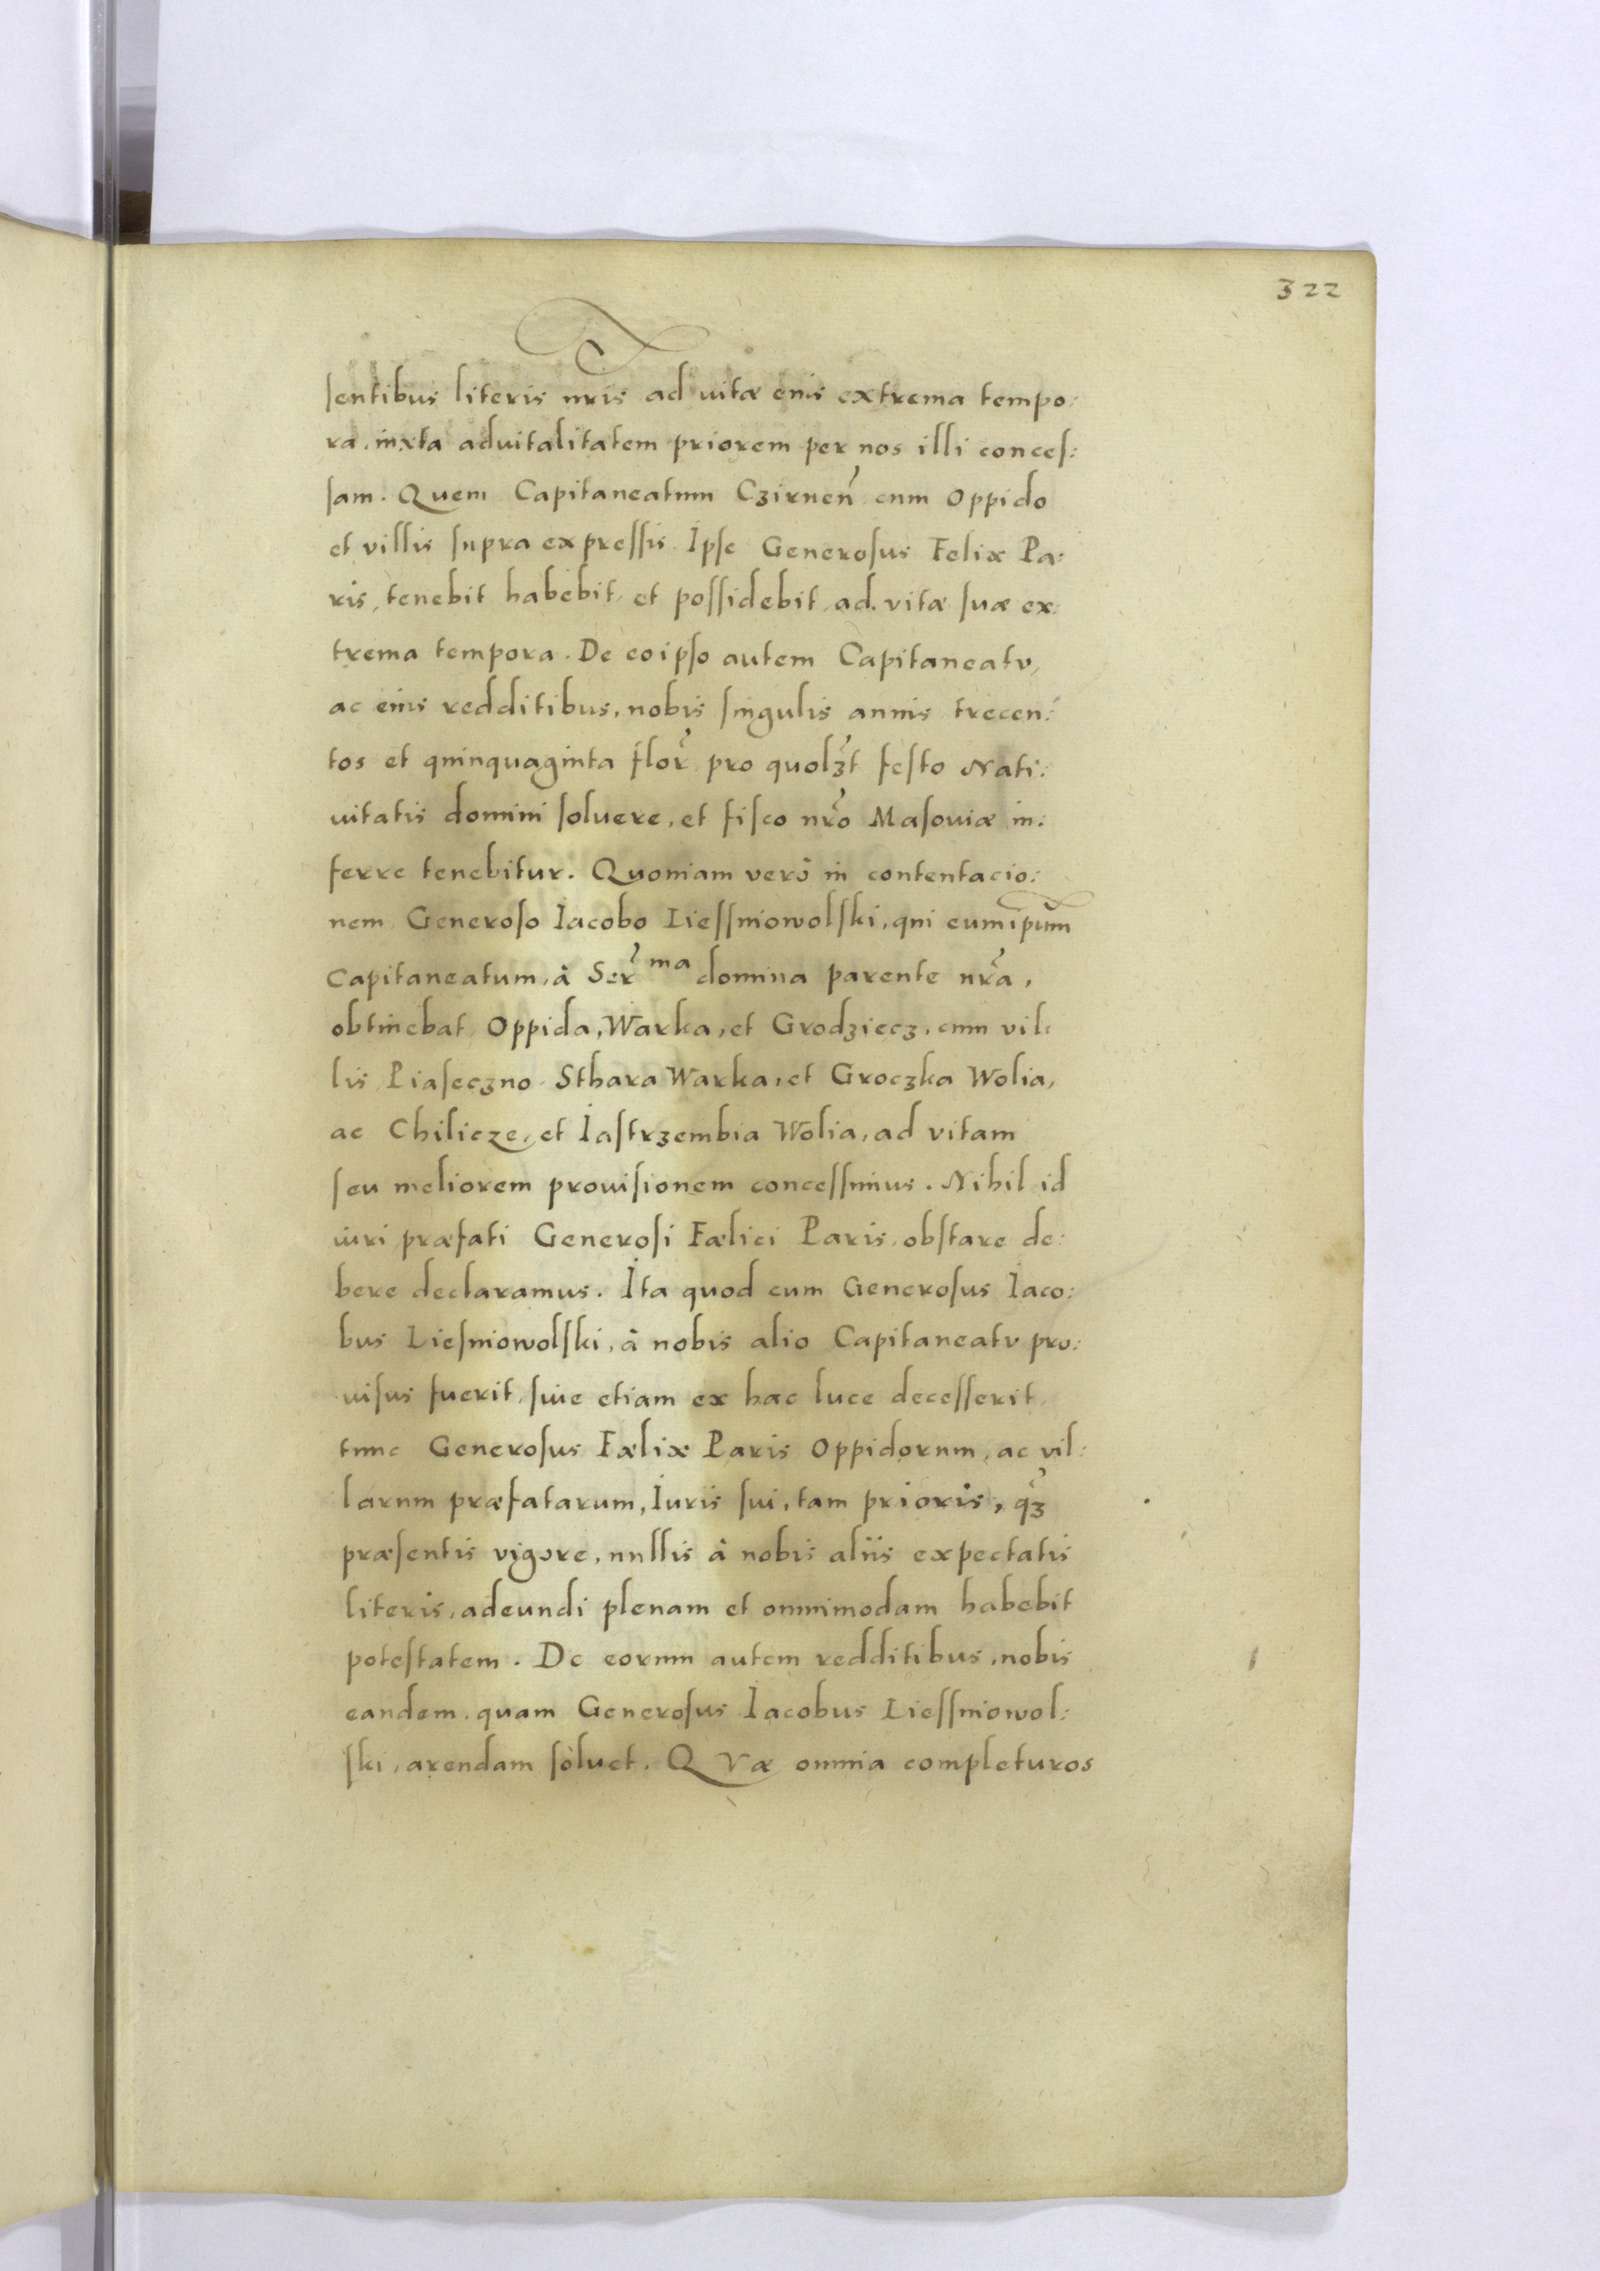 322
sentibus literis nris ad vitæ eius extrema tempo:
ra, iuxta advitalitatem priorem per nos illi conces:
sam. Quem Capitaneatum Czirnen̄ cum Oppido
et villis supra expressis Ipse Generosus Felix Pa:
ris, tenebit habebit, et possidebit, ad vitæ suæ ex:
trema tempora. De eoipso autem Capitaneatu,
ac eius redditibus, nobis singulis annis trecen:
tos et quinquaginta flor̄ pro quolȝt festo Nati:
uitatis domini soluere, et fisco nr̄o Masouiæ in:
ferre tenebitur. Quoniam verò in contentacio:
nem Generoso Iacobo Liessniowolski, qui eumip̄um
Capitaneatum, à Ser̄ ma domina parente nr̄a,
obtinebat Oppida, Warka, et Grodziecz, cum vil:
lis Piaseczno Sthara Warka, et Groczka Wolia,
ac Chilicze, et Iastrzembia Wolia, ad vitam
seu meliorem prouisionem concessimus. Nihil id
iuri præfati Generosi Fælici Paris, obstare de:
bere declaramus. Ita quod cum Generosus Iaco:
bus Liesniowolski, à nobis alio Capitaneatu pro:
uisus fuerit, siue etiam ex hac luce decesserit
tunc Generosus Fælix Paris Oppidorum, ac vil:
larum præfatarum, Iuris sui, tam prioris, qȝ̄
præsentis vigore, nullis à nobis aliis expectatis
literis, adeundi plenam et omnimodam habebit
potestatem. De eorum autem redditibus, nobis
eandem, quam Generosus Iacobus Liessniowol:
ski, arendam soluet. QVæ omnia completuros